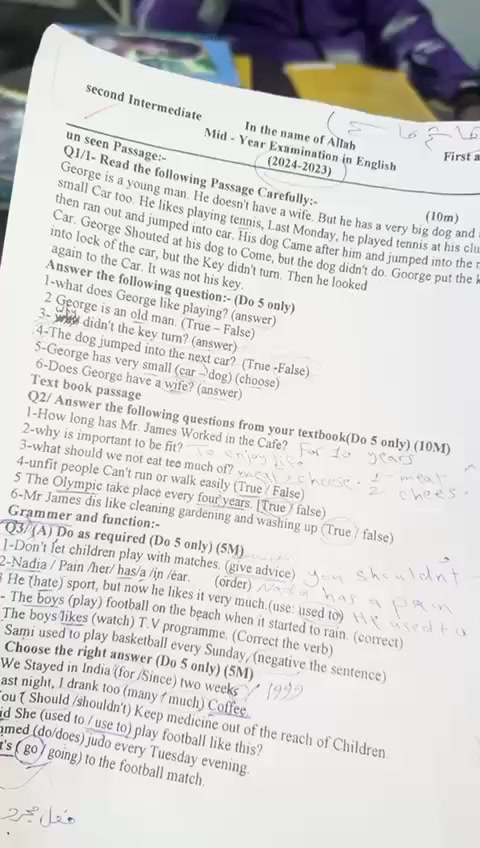 second Intermediate
In the name of Allah
Mid - Year Examination in English
First a
(2024-2023)
un seen Passage:-
(10m)
Q1/1- Read the following Passage Carefully:-
George is a young man. He doesn't have a wife. But he has a very big dog and
small Car too. He likes playing tennis, Last Monday, he played tennis at his clu
then ran out and jumped into car. His dog Came after him and jumped into the n
Car. George Shouted at his dog to Come, but the dog didn't do. Goorge put the k
into lock of the car, but the Key didn't turn. Then he looked
again to the Car. It was not his key.
Answer the following question:- (Do 5 only)
1-what does George like playing? (answer)
2 George is an old man. (True – False)
3- didn't the key turn? (answer)
4-The dog jumped into the next car? (True -False)
5-George has very small (car – dog) (choose)
6-Does George have a wife? (answer)
Text book passage
Q2/ Answer the following questions from your textbook(Do 5 only) (10M)
1-How long has Mr. James Worked in the Cafe? For 10 years
2-why is important to be fit? To enjoy life
3-what should we not eat tee much of? meat, cheese. 1 meat
2 chees.
4-unfit people Can't run or walk easily (True / False)
5 The Olympic take place every four years. (True / false)
6-Mr James dis like cleaning gardening and washing up (True / false)
Grammar and function:-
Q3/ (A) Do as required (Do 5 only) (5M)
1-Don't let children play with matches. (give advice) you shouldn't
2-Nadia / Pain /her/ has/a /in /ear. (order) Nadia has a pain
(hate) sport, but now he likes it very much.(use: used to) He used to
- The boys (play) football on the beach when it started to rain. (correct)
The boys likes (watch) T.V programme. (Correct the verb)
Sami used to play basketball every Sunday. (negative the sentence)
Choose the right answer (Do 5 only) (5M)
We Stayed in India (for /Since) two weeks / 1999
ast night, I drank too (many / much) Coffee.
ou ( Should /shouldn't) Keep medicine out of the reach of Children.
id She (used to / use to) play football like this?
med (do/does) judo every Tuesday evening.
t's ( go / going) to the football match.
فعل مجرد